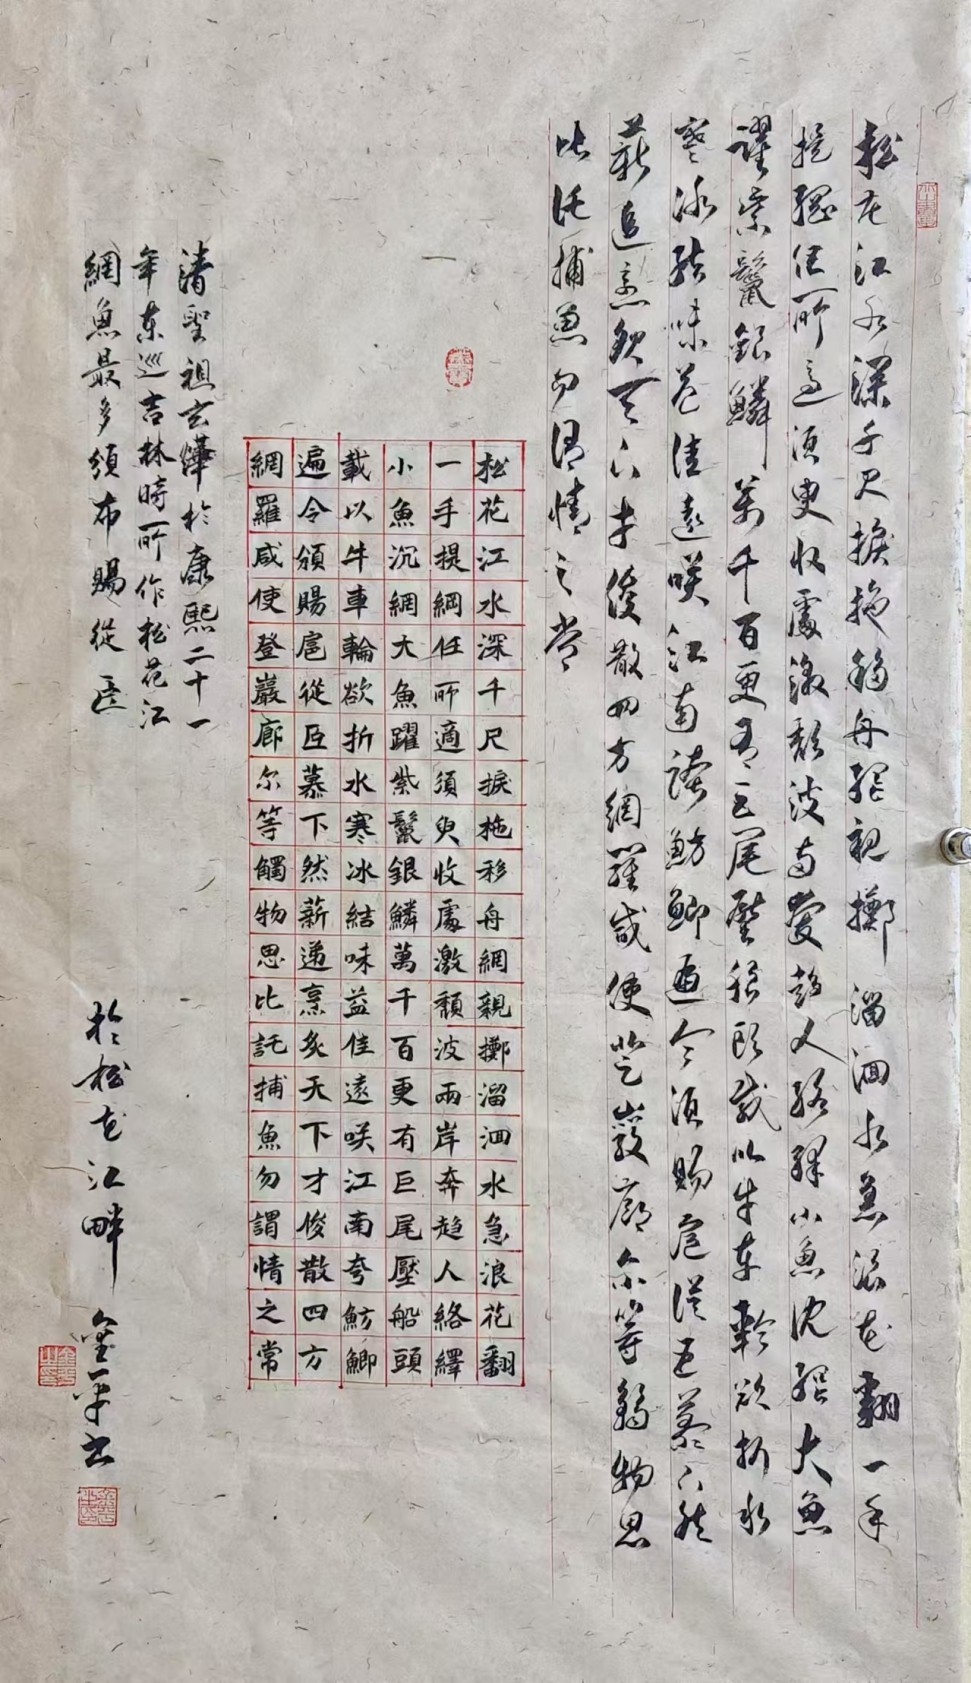 松花江水深千尺捩拖移舟網親擲溜洄水急浪花翻一手
提網任所適須臾收處激頹波兩岸奔趋人絡繹小魚沉網大魚
躍紫鬣銀鱗萬千百更有巨尾壓船頭載以牛車輪欲折水
寒冰結味益佳遠咲江南誇魴鯽遍令頒賜扈從臣慕下然
薪递烹炙天下才俊散四方網羅咸使登巖廊尔等觸物思
比託捕魚勿謂情之常
松花江水深千尺捩拖移舟網親擲溜洄水急浪花翻
一手提綱任所適須臾收處激頹波兩岸奔趋人絡繹
小魚沉網大魚躍紫鬣銀鱗萬千百更有巨尾壓船頭
載以牛車輪欲折水寒冰結味益佳遠咲江南夸魴鯽
遍令頒賜扈從臣慕下然薪递烹炙天下才俊散四方
網羅咸使登巖廊尔等觸物思比託捕魚勿謂情之常
清聖祖玄燁於康熙二十一
年東巡吉林時所作松花江
網魚最多頒布賜從臣
於松花江畔 金平書